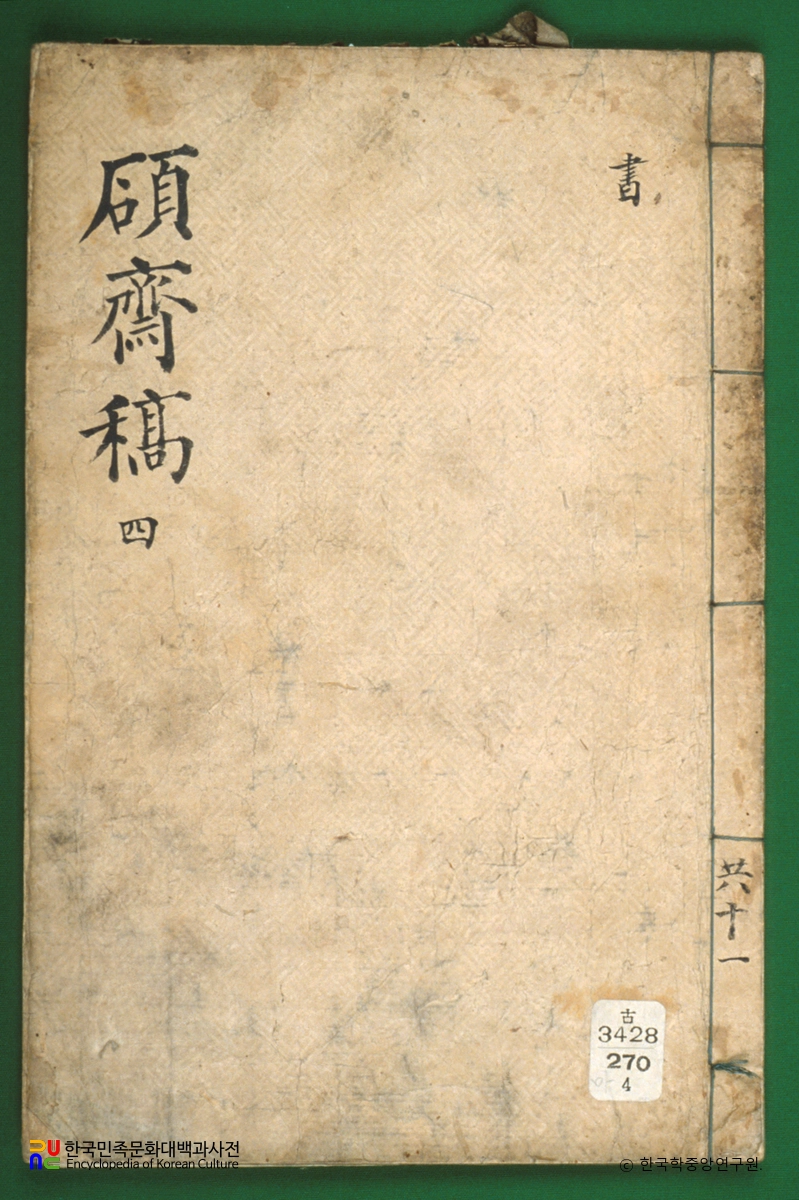 書
碩齋稿 四
共十一
古
3428
270
4
한국민족문화대백과사전
Encyclopedia of Korean Culture
© 한국학중앙연구원.